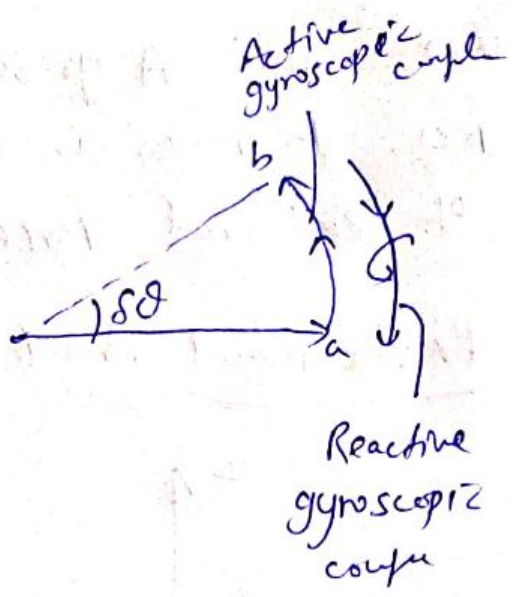 Active
gyroscopic
couple
b
δθ
a
Reactive
gyroscopic
couple